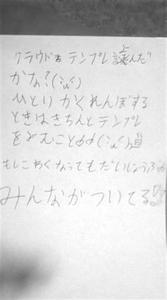 クラウドはテンプレ読んだ
かな?(;´д`)
ひとりかくれんぼする
ときはきちんとテンプレ
をよむこと
もしこわくなってもだいじょうぶ
みんながついてる